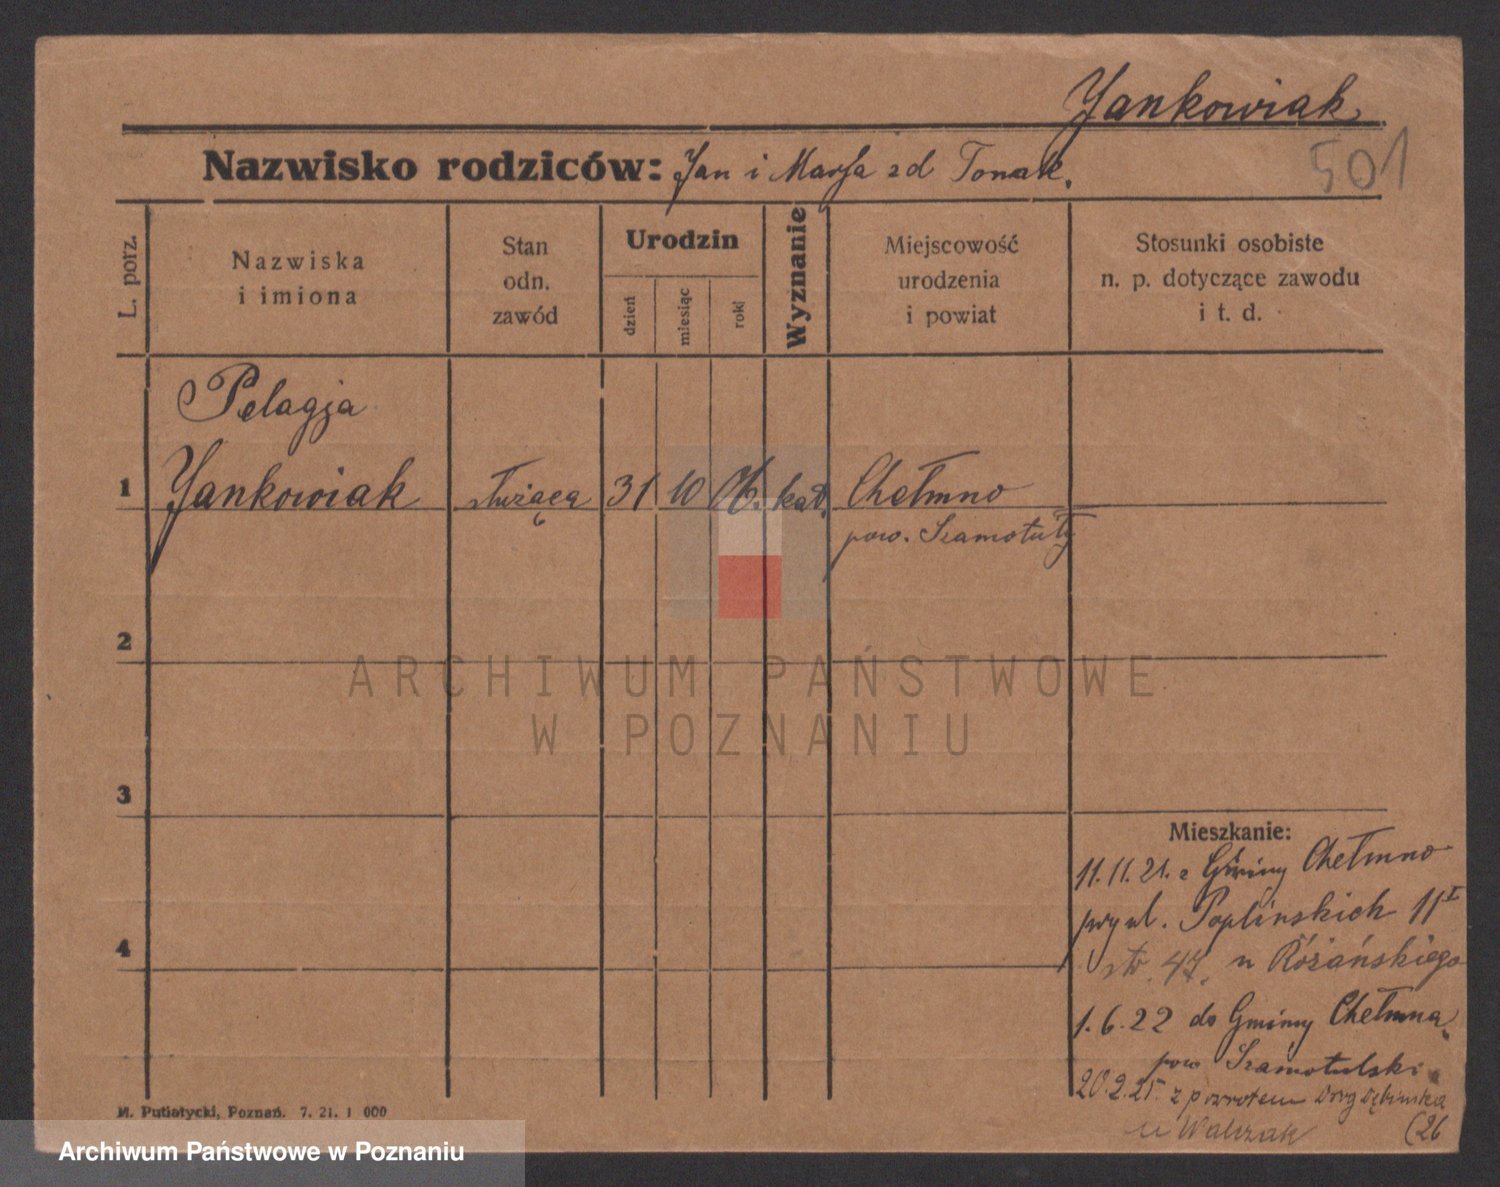 Yankowiak
501
Nazwisko rodziców: Jan i Marja zd Tomak.
L. porz.
Nazwiska
i imiona
Stan
odn.
zawód
Urodzin
dzień
miesiąc
rok
Wyznanie
Miejscowość
urodzenia
i powiat
Stosunki osobiste
n. p. dotyczące zawodu
i t. d.
Pelagja
1 Yankowiak służąca 31 10 kat. Chełmno
pow. Szamotuły
2
ARCHIWUM PAŃSTWOWE
W POZNANIU
3
Mieszkanie:
11.11.21. z Gminy Chełmno
przy ul. Poplińskich 11 I
str. 47. u Różańskiego
4
1.6.22 do Gminy Chełmna,
pow Szamotulski
20.2.25. z powrotem Dębinska
u Walczak (26
M. Putiatycki, Poznań. 7. 21. 1 000
Archiwum Państwowe w Poznaniu